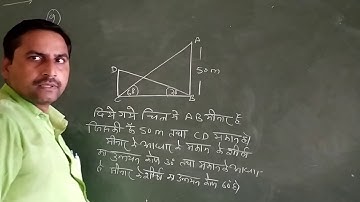 A
D
50m
60
30
C
B
दिये गये चित्र में AB मीनार है
जिसकी ऊँ 50m तथा CD मकान है।
मीनार के आधार से मकान के शीर्ष
का उन्नयन कोण 30 तथा मकान के आधार
से मीनार के शीर्ष का उन्नयन कोण 60 है।